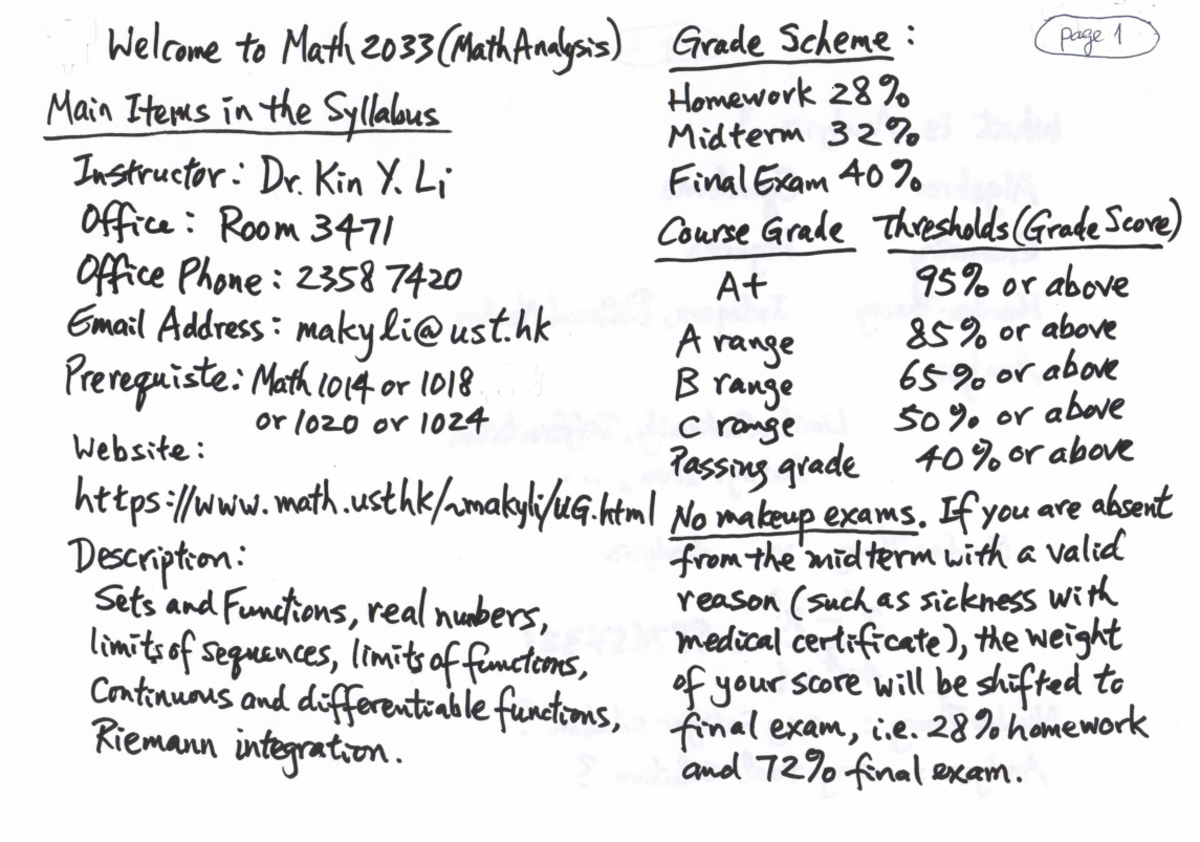 Welcome to Math 2033 (Math Analysis)
Main Items in the Syllabus
Instructor: Dr. Kin Y. Li
Office: Room 3471
Office Phone: 2358 7420
Email Address: makyli@ust.hk
Prerequiste: Math 1014 or 1018
or 1020 or 1024
Website:
https://www.math.ust.hk/~makyli/UG.html
Description:
Sets and Functions, real numbers,
limits of sequences, limits of functions,
Continuous and differentiable functions,
Riemann integration.
page 1
Grade Scheme:
Homework 28%
Midterm 32%
Final Exam 40%
Course Grade Thresholds (Grade Score)
A+ 95% or above
A range 85% or above
B range 65% or above
C range 50% or above
Passing grade 40% or above
No makeup exams. If you are absent
from the midterm with a valid
reason (such as sickness with
medical certificate), the weight
of your score will be shifted to
final exam, i.e. 28% homework
and 72% final exam.